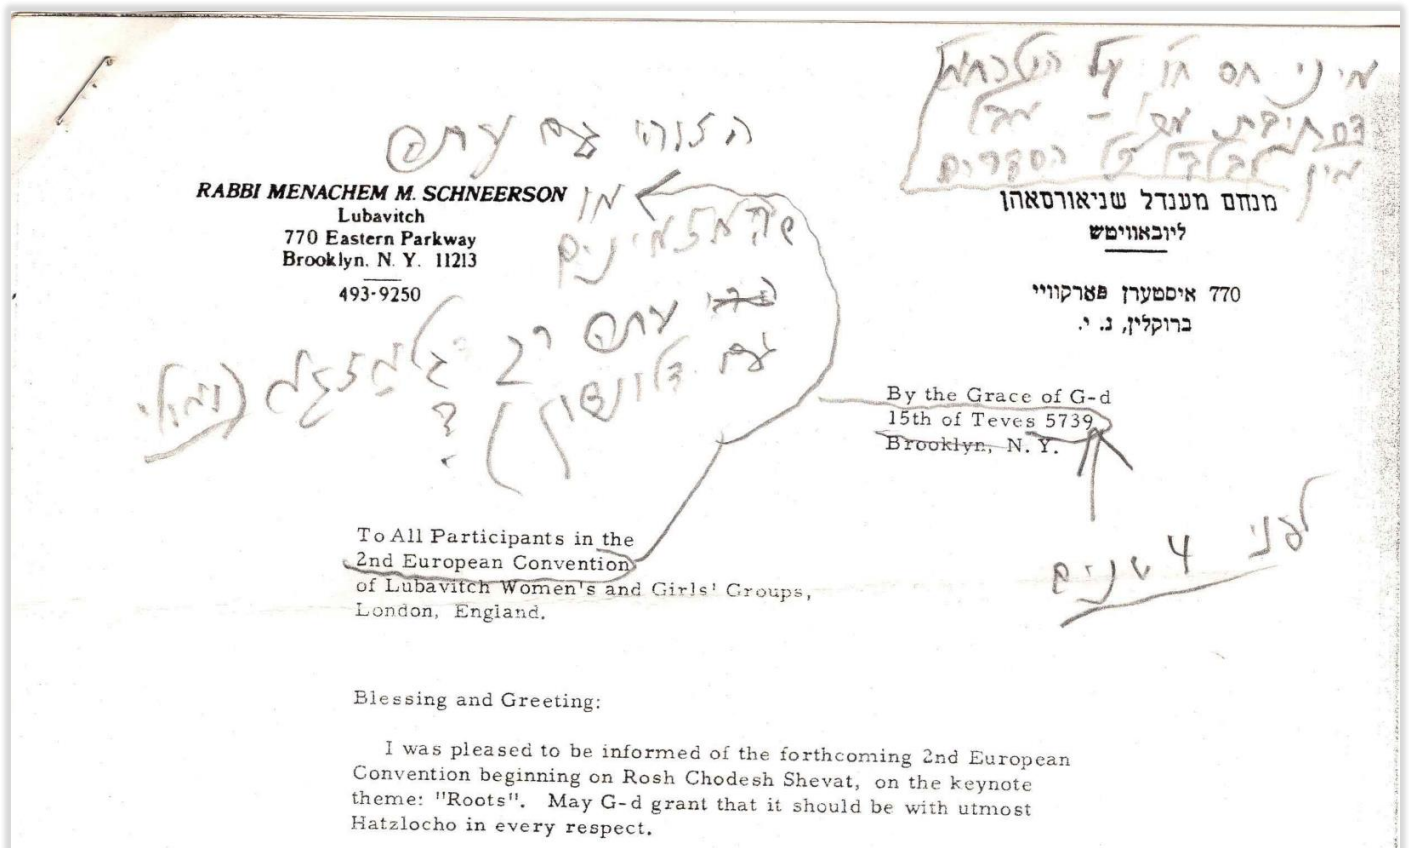 על
מבלי
לבלבל כל הסדרים
הזוהי גם עתה
RABBI MENACHEM M. SCHNEERSON
Lubavitch
770 Eastern Parkway
Brooklyn, N. Y. 11213
493-9250
מנחם מענדל שניאורסאהן
ליובאוויטש
770 איסטערן פארקוויי
ברוקלין, נ. י.
או
שהמזמינים
עתה
גם
?
By the Grace of G-d
15th of Teves 5739
Brooklyn, N. Y.
לפני 4 שנים
To All Participants in the
2nd European Convention
of Lubavitch Women's and Girls' Groups,
London, England.
Blessing and Greeting:
I was pleased to be informed of the forthcoming 2nd European
Convention beginning on Rosh Chodesh Shevat, on the keynote
theme: "Roots". May G-d grant that it should be with utmost
Hatzlocho in every respect.